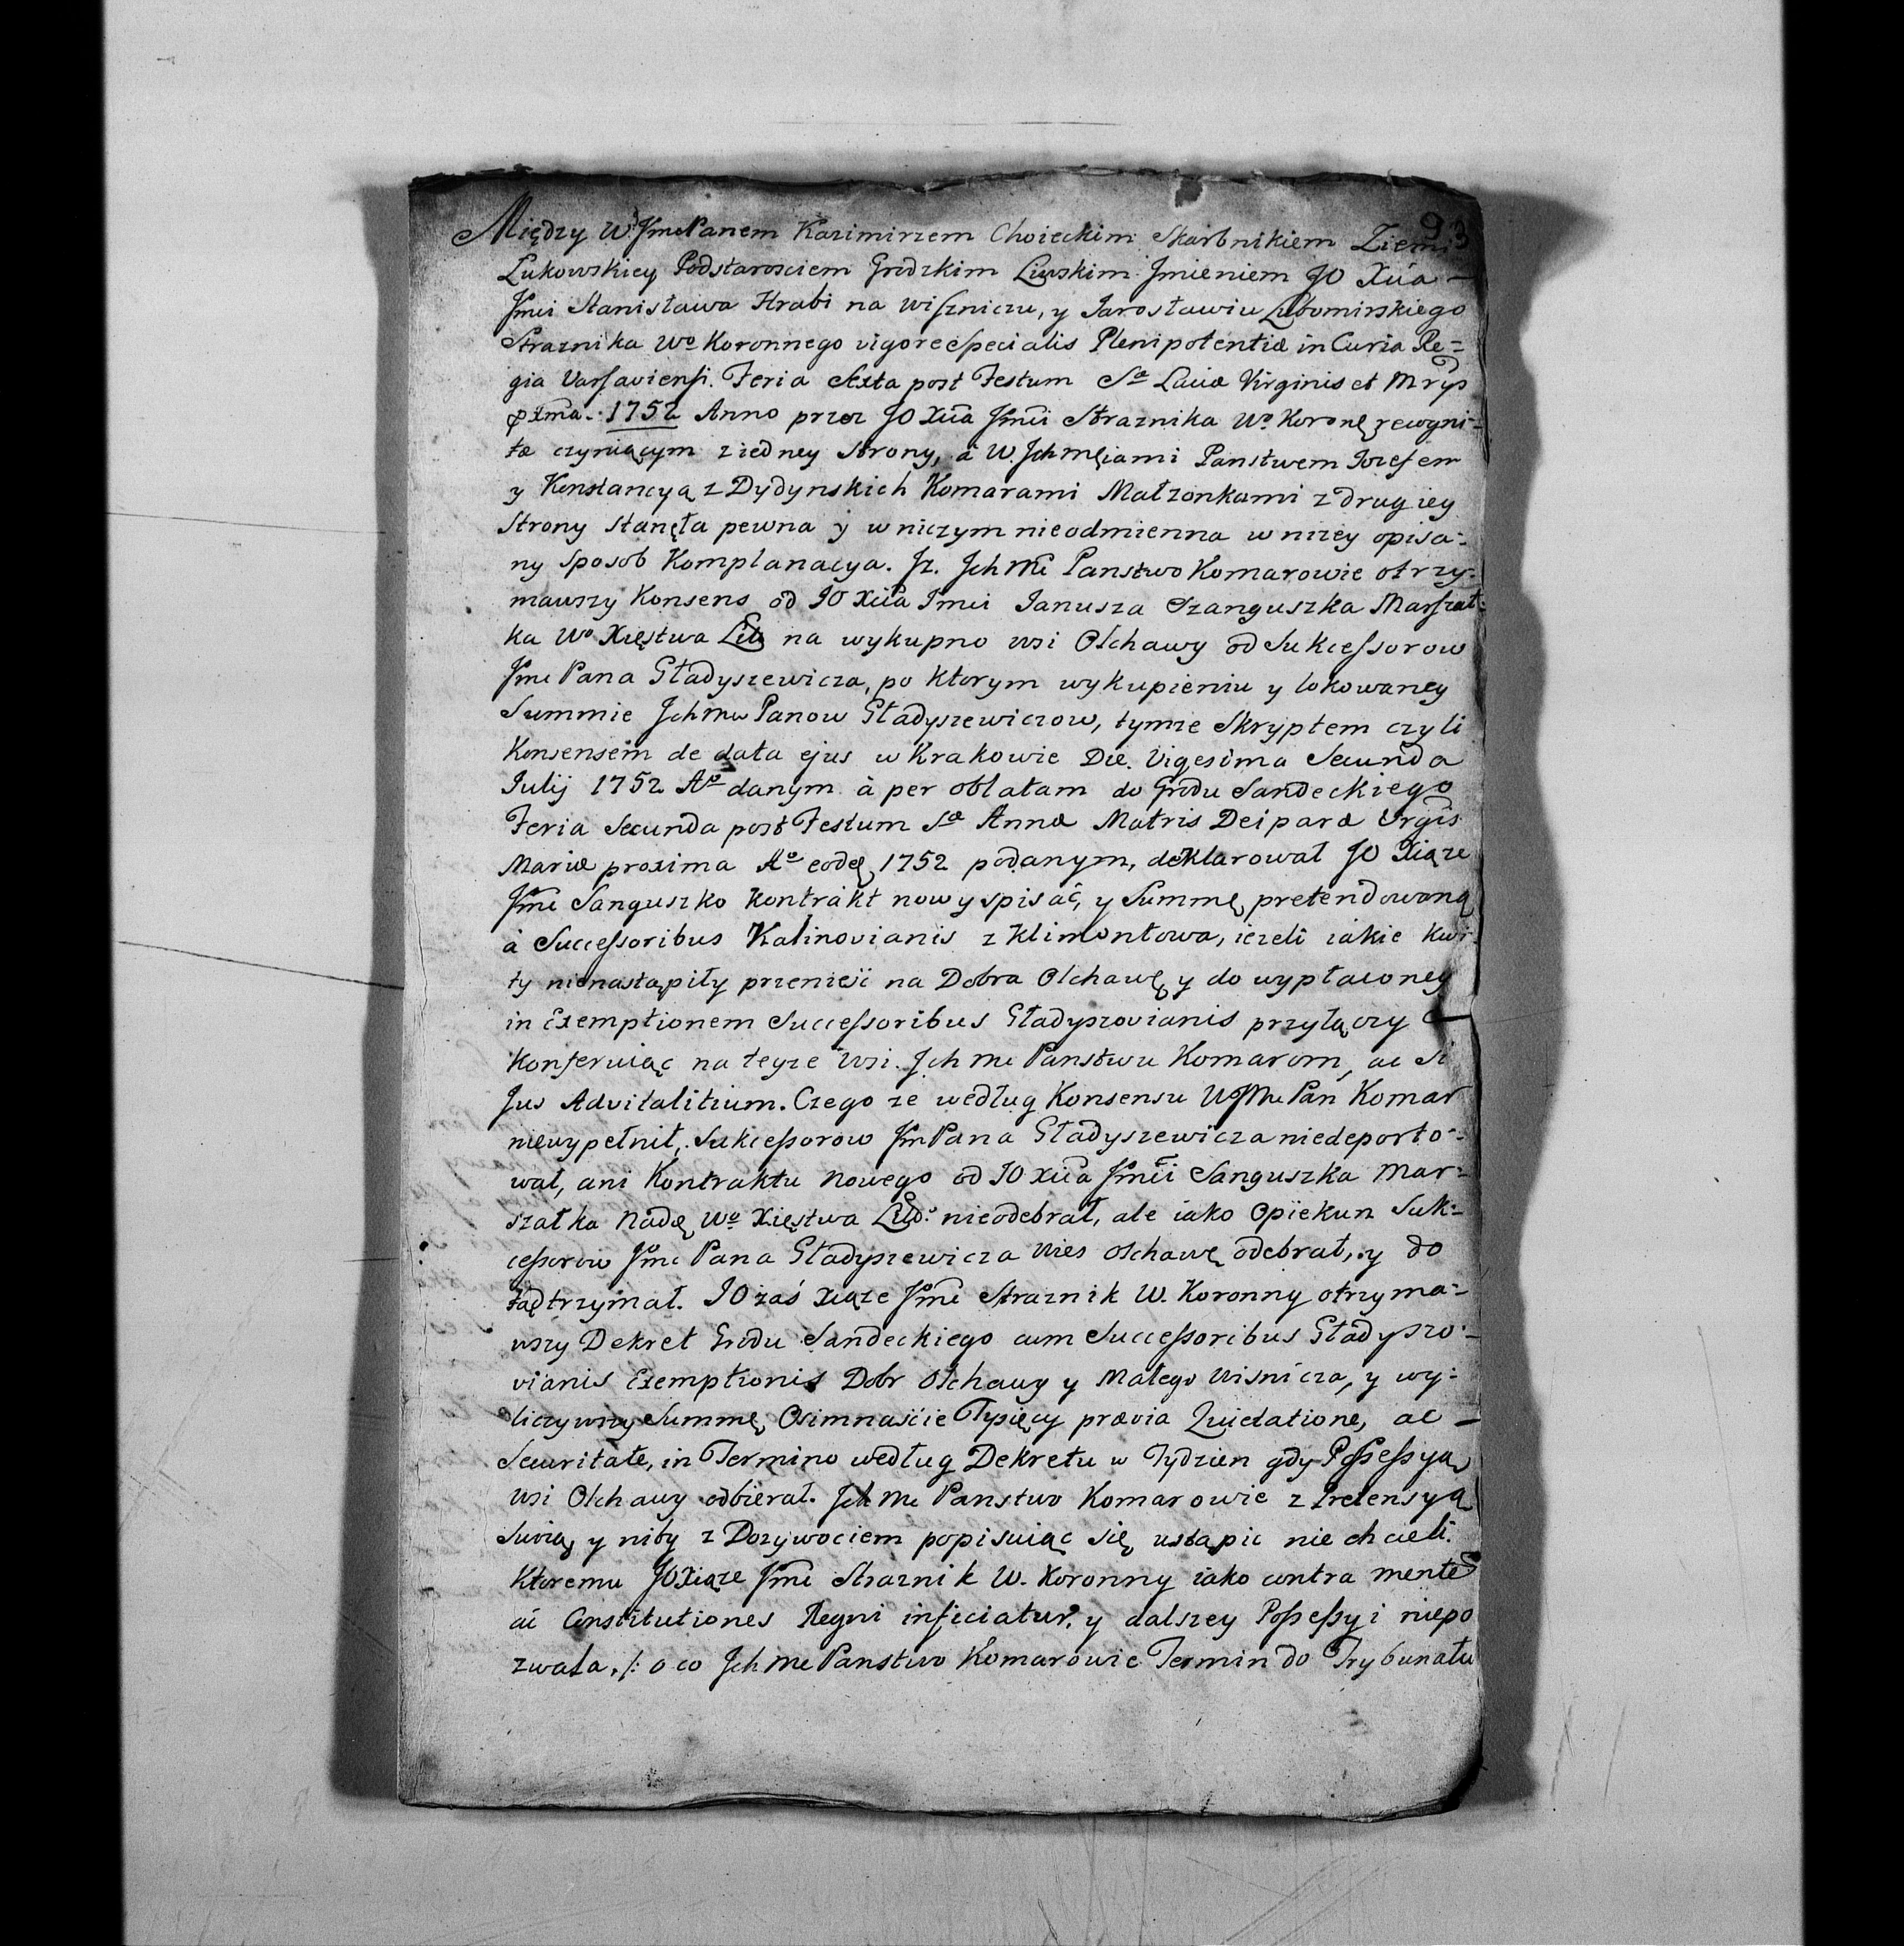 93
Między W. JmcPanem Kazimirzem Choieckim Skarbnikiem Ziemi
Łukowskiey Podstarosciem Grodzkim Liwskim Jmieniem JO Xcia
Jmci Stanisława Hrabi na Wiszniczu, y Jarosławiu Lubomirskiego
Straznika Wo Koronnego vigore Specialis Plenipotentiæ in Curia Re=
gia Varsaviensi. Feria Sexta post Festum Sæ Luciæ Virginis et Mrys
pxima. 1752 Anno przez JO Xcia Jmci Straznika Wo Koronę rewgni=
tæ czyniącym z iedney Strony, a W. Jchmciami Panstwem Jozefem
y Konstancyą z Dydynskich Komarami Małzonkami z drugiey
Strony Stanęła pewna y w niczym nieodmienna w nizey opisa=
ny Sposob Komplanacya. Jz. Jchmć Panstwo Komarowie otrzy=
mawszy Konsens od JO Xcia Jmci Janusza Szanguszka Marszał=
ka Wo Xięstwa Litt na wykupno wsi Olchawy od Sukcessorow
Jmc Pana Gładyszewicza, po ktorym wykupieniu y lokowaney
Summie Jchmw Panow Gładyszewiczow, tymze Skryptem czyli
Konsensem de data ejus w Krakowie Die. Vigesima Secunda
Julij 1752 Ao danym à per oblatam do Grodu Sandeckiego
Feria Secunda post Festum Sæ Annæ Matris Deiparæ Vrgis
Mariæ proxima Ao eodę 1752 podanym, deklarował JO Xiąze
Jmć Sanguszko Kontrakt nowy spisać, y Summę pretendowaną
à Successoribus Kalinovianis z Klimontowa, iezeli iakie kwi=
ty nienastąpiły przenieść na Dobra Olchawę y do wypłaconey
in Exemptionem Successoribus Gładyszovianis przyłączyć
Konferuiąc na teyze Wsi. Jchmc Panstwu Komarom, ac Si
Jus Advitalitium. Czego ze według Konsensu WJMc Pan Komar
niewypełnił, Sukcessorow Jm Pana Gładyszewicza niedeporto=
wał, ani Kontraktu nowego od JO Xcia Jmci Sanguszka Mar=
szałka Nadę Wo Xięstwa Litt: nieodebrał, ale iako Opiekun Suk=
cessorow Jmc Pana Gładyszewicza Wies Olchawę odebrał, y do
tąd trzymał. JO zaś Xiąze Jmć Straznik W. Koronny otrzyma=
wszy Dekret Grodu Sandeckiego cum Successoribus Gładyszo=
vianis Exemptionis Dobr Olchawy y Małego Wisnicza, y wy=
liczywszy Summę Osimnaście Tysięcy prævia Quietatione, ac
Securitate, in Termino według Dekretu w Tydzien gdy Possessyą
wsi Olchawy odbierał. Jchmc Panstwo Komarowie z Pretensyą
Swią y niby z Dozywociem popisuiąc się ustąpic nie chcieli.
Ktoremu JOXiąze Jmć Straznik W. Koronny iako contra mentę
ac Constitutiones Regni inficiatur, y dalszey Possessyi niepo
zwala, /: o co Jchmc Panstwo Komarowie Termin do Trybunału